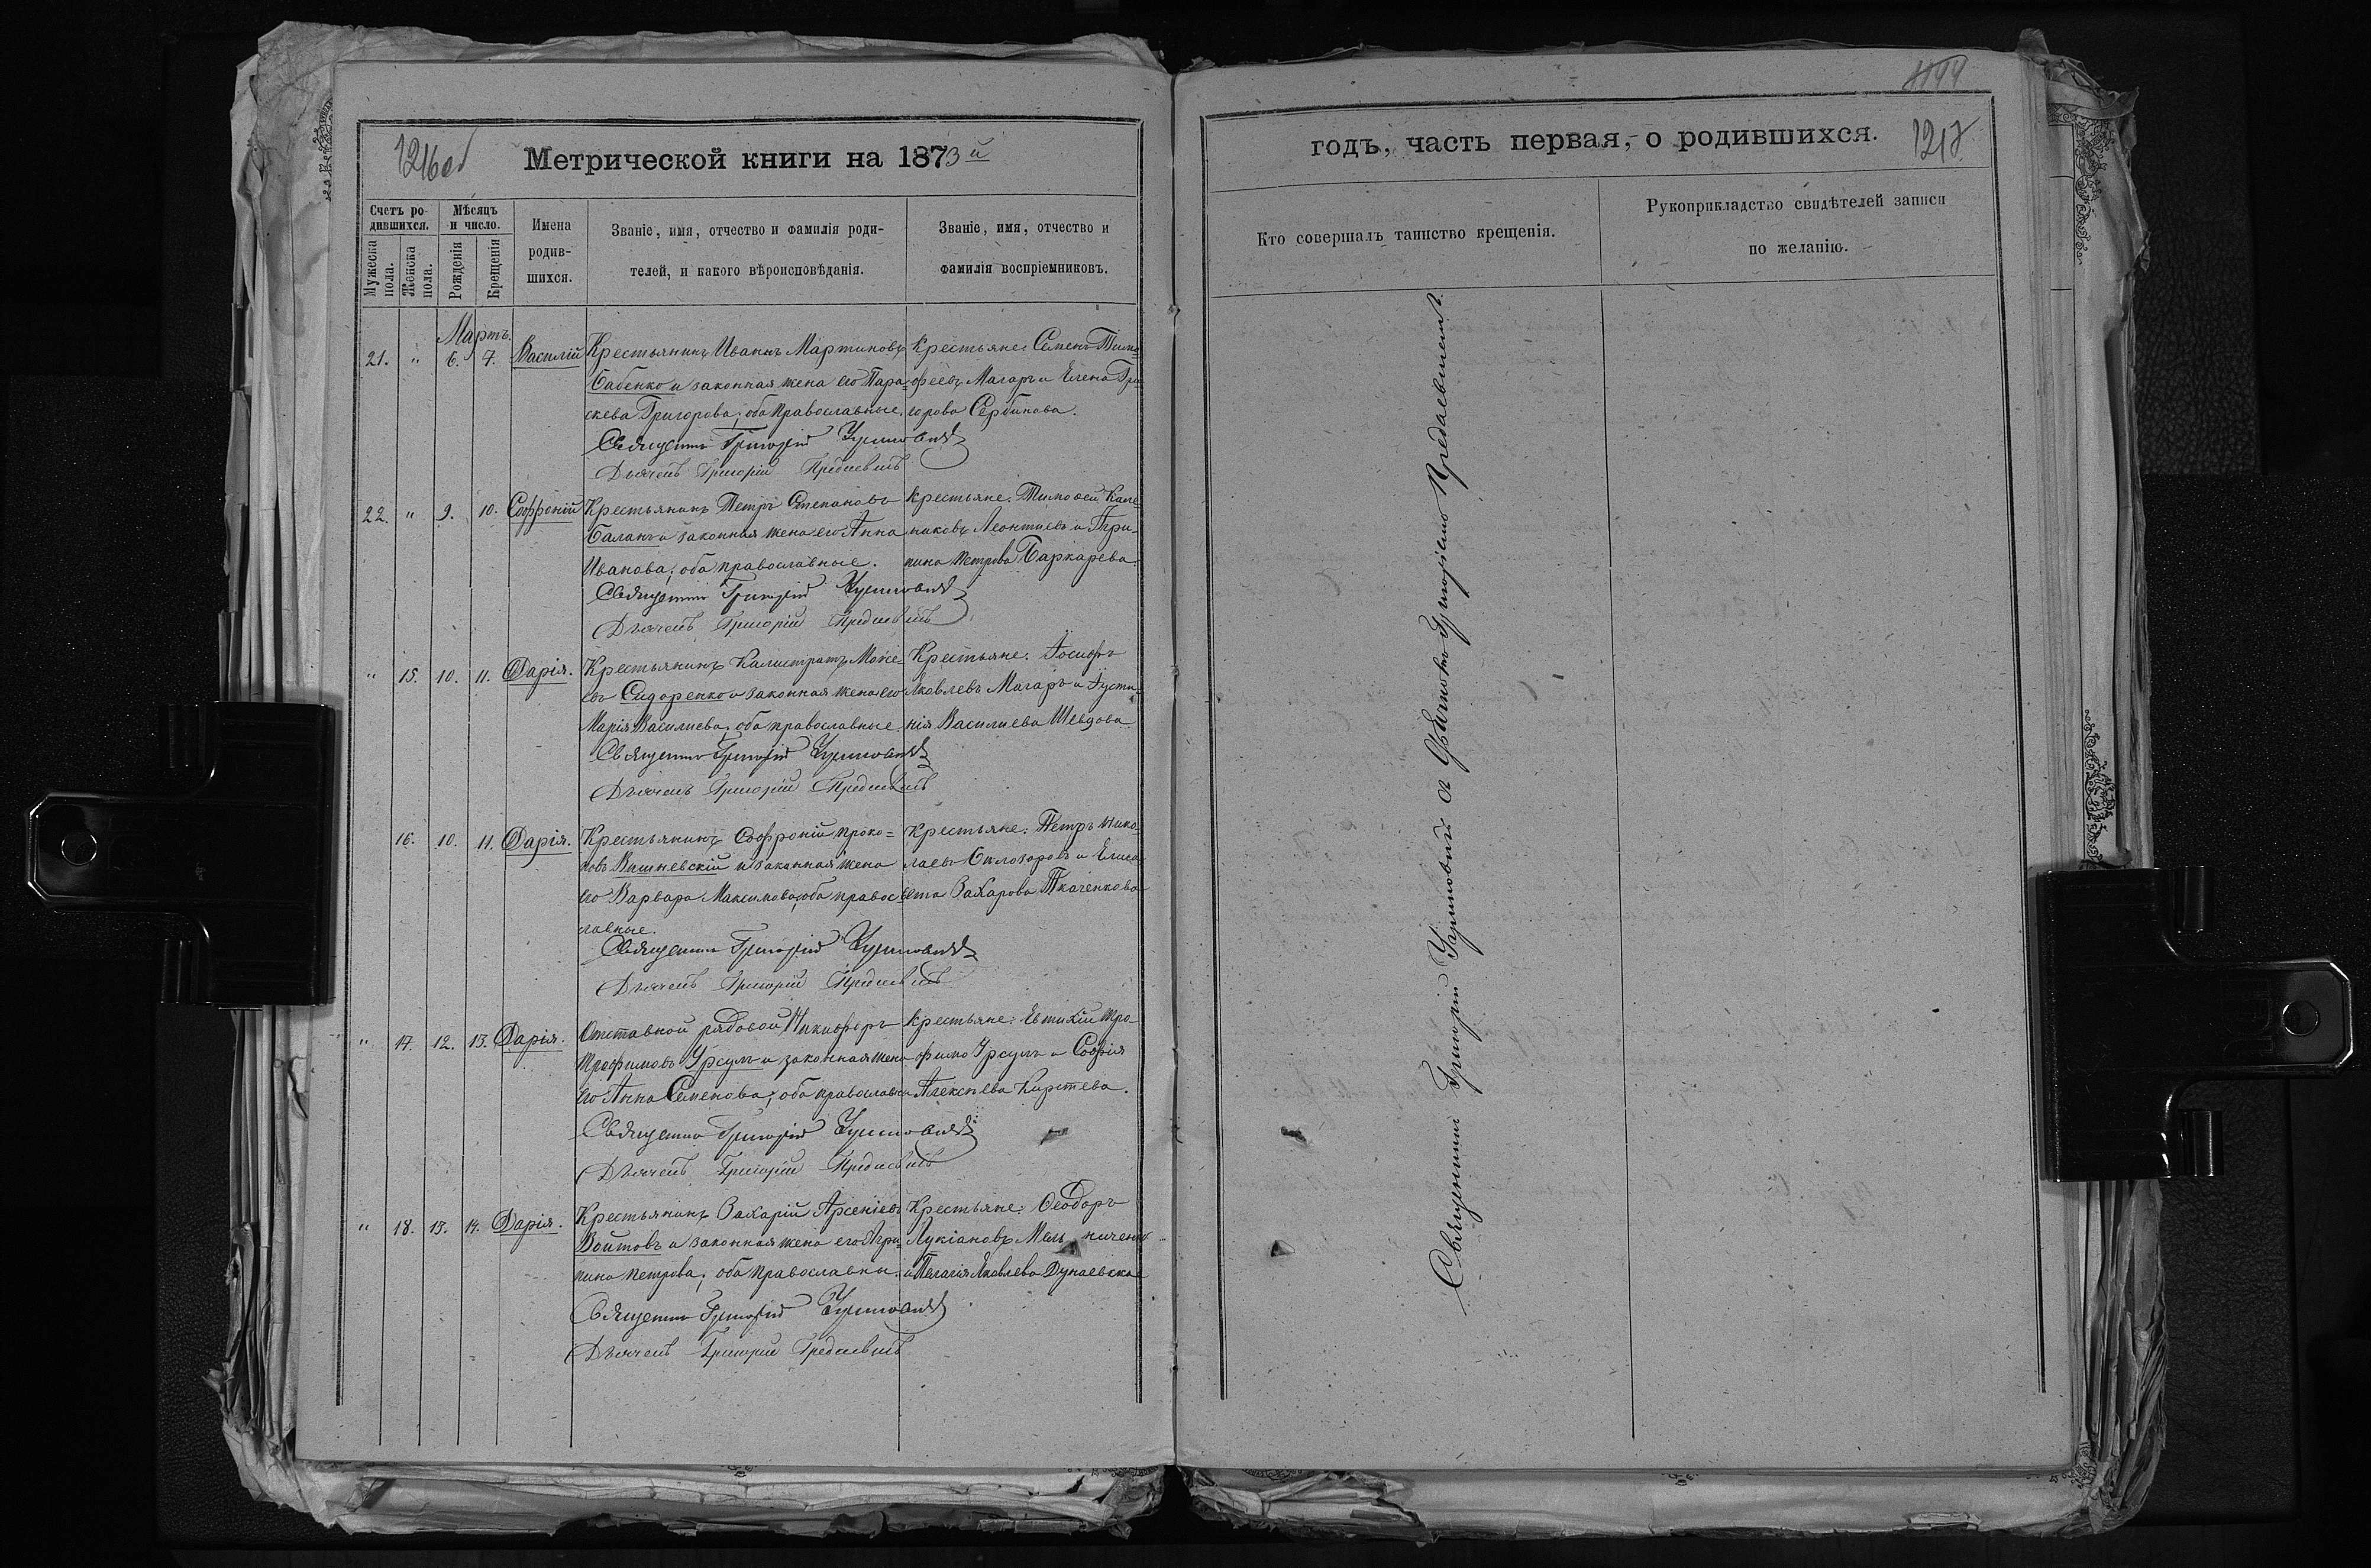 1216об
Метрической книги на 1873й
Счетъ ро-
дившихся.
Мѣсяцъ
и число.
Имена
родив-
шихся.
Званіе, имя, отчество и фамилія роди-
телей, и какого вѣроисповѣданія.
Званіе, имя, отчество и
фамилія воспріемниковъ.
Мужеска
пола.
Женска
пола.
Рожденія
Крещенія
Мартъ.
21. " 6. 7. Василій Крестьянинъ Иванъ Мартиновъ Крестьяне: Семенъ Тимо-
Бабенко и законная жена его Пара- феевъ Магаръ и Елена Гри-
скева Григорова, оба православные. горова Сербинова.
Священникъ Григорій
Дьячекъ Григорій
22. " 9. 10. Софроній Крестьянинъ Петръ Степановъ Крестьяне: Тимофей
Баланъ и законная жена его Анна Леонтиевъ и Агри-
Иванова, оба православные. пина Петрова Баркарева.
Священникъ Григорій
Дьячекъ Григорій
" 15. 10. 11. Дарія. Крестьянинъ Калистратъ Моисе- Крестьяне: Іосифъ
евъ Сидоренко и законная жена его Яковлевъ Магаръ и Іусти-
Марія Василиева, оба православные нія Василиева Шевцова.
Священникъ Григорій
Дьячекъ Григорій
16. 10. 11. Дарія. Крестьянинъ Софроній Проко- Крестьяне: Петръ Нико-
повъ Вишневскій и законная жена лаевъ и Елиса-
его Варвара Максимова, оба правос- вета Захарова Ткаченкова
лавные.
Священникъ Григорій
Дьячекъ Григорій
" 17. 12. 13. Дарія. Отставной рядовой Никифоръ Крестьяне: Евтихій Тро-
Трофимовъ Урсулъ и законная жена фимо Урсулъ и Софія
его Анна Семенова, оба православны Алексѣева Киртева.
Священникъ Григорій
Дьячекъ Григорій
" 18. 13. 14. Дарія. Крестьянинъ Захарій Арсеніевъ Крестьяне: Ѳеодоръ
Войтовъ и законная жена его Агри- Лукіановъ Мельниченко
пина Петрова, оба православны. и Пелагія Яковлева Дунаевская
Священникъ Григорій
Дьячекъ Григорій
1217
годъ, часть первая, о родившихся.
Кто совершалъ таинство крещенія.
Рукоприкладство свидѣтелей записи
по желанію.
Священникъ Григорій съ Дьячкомъ Григоріемъ